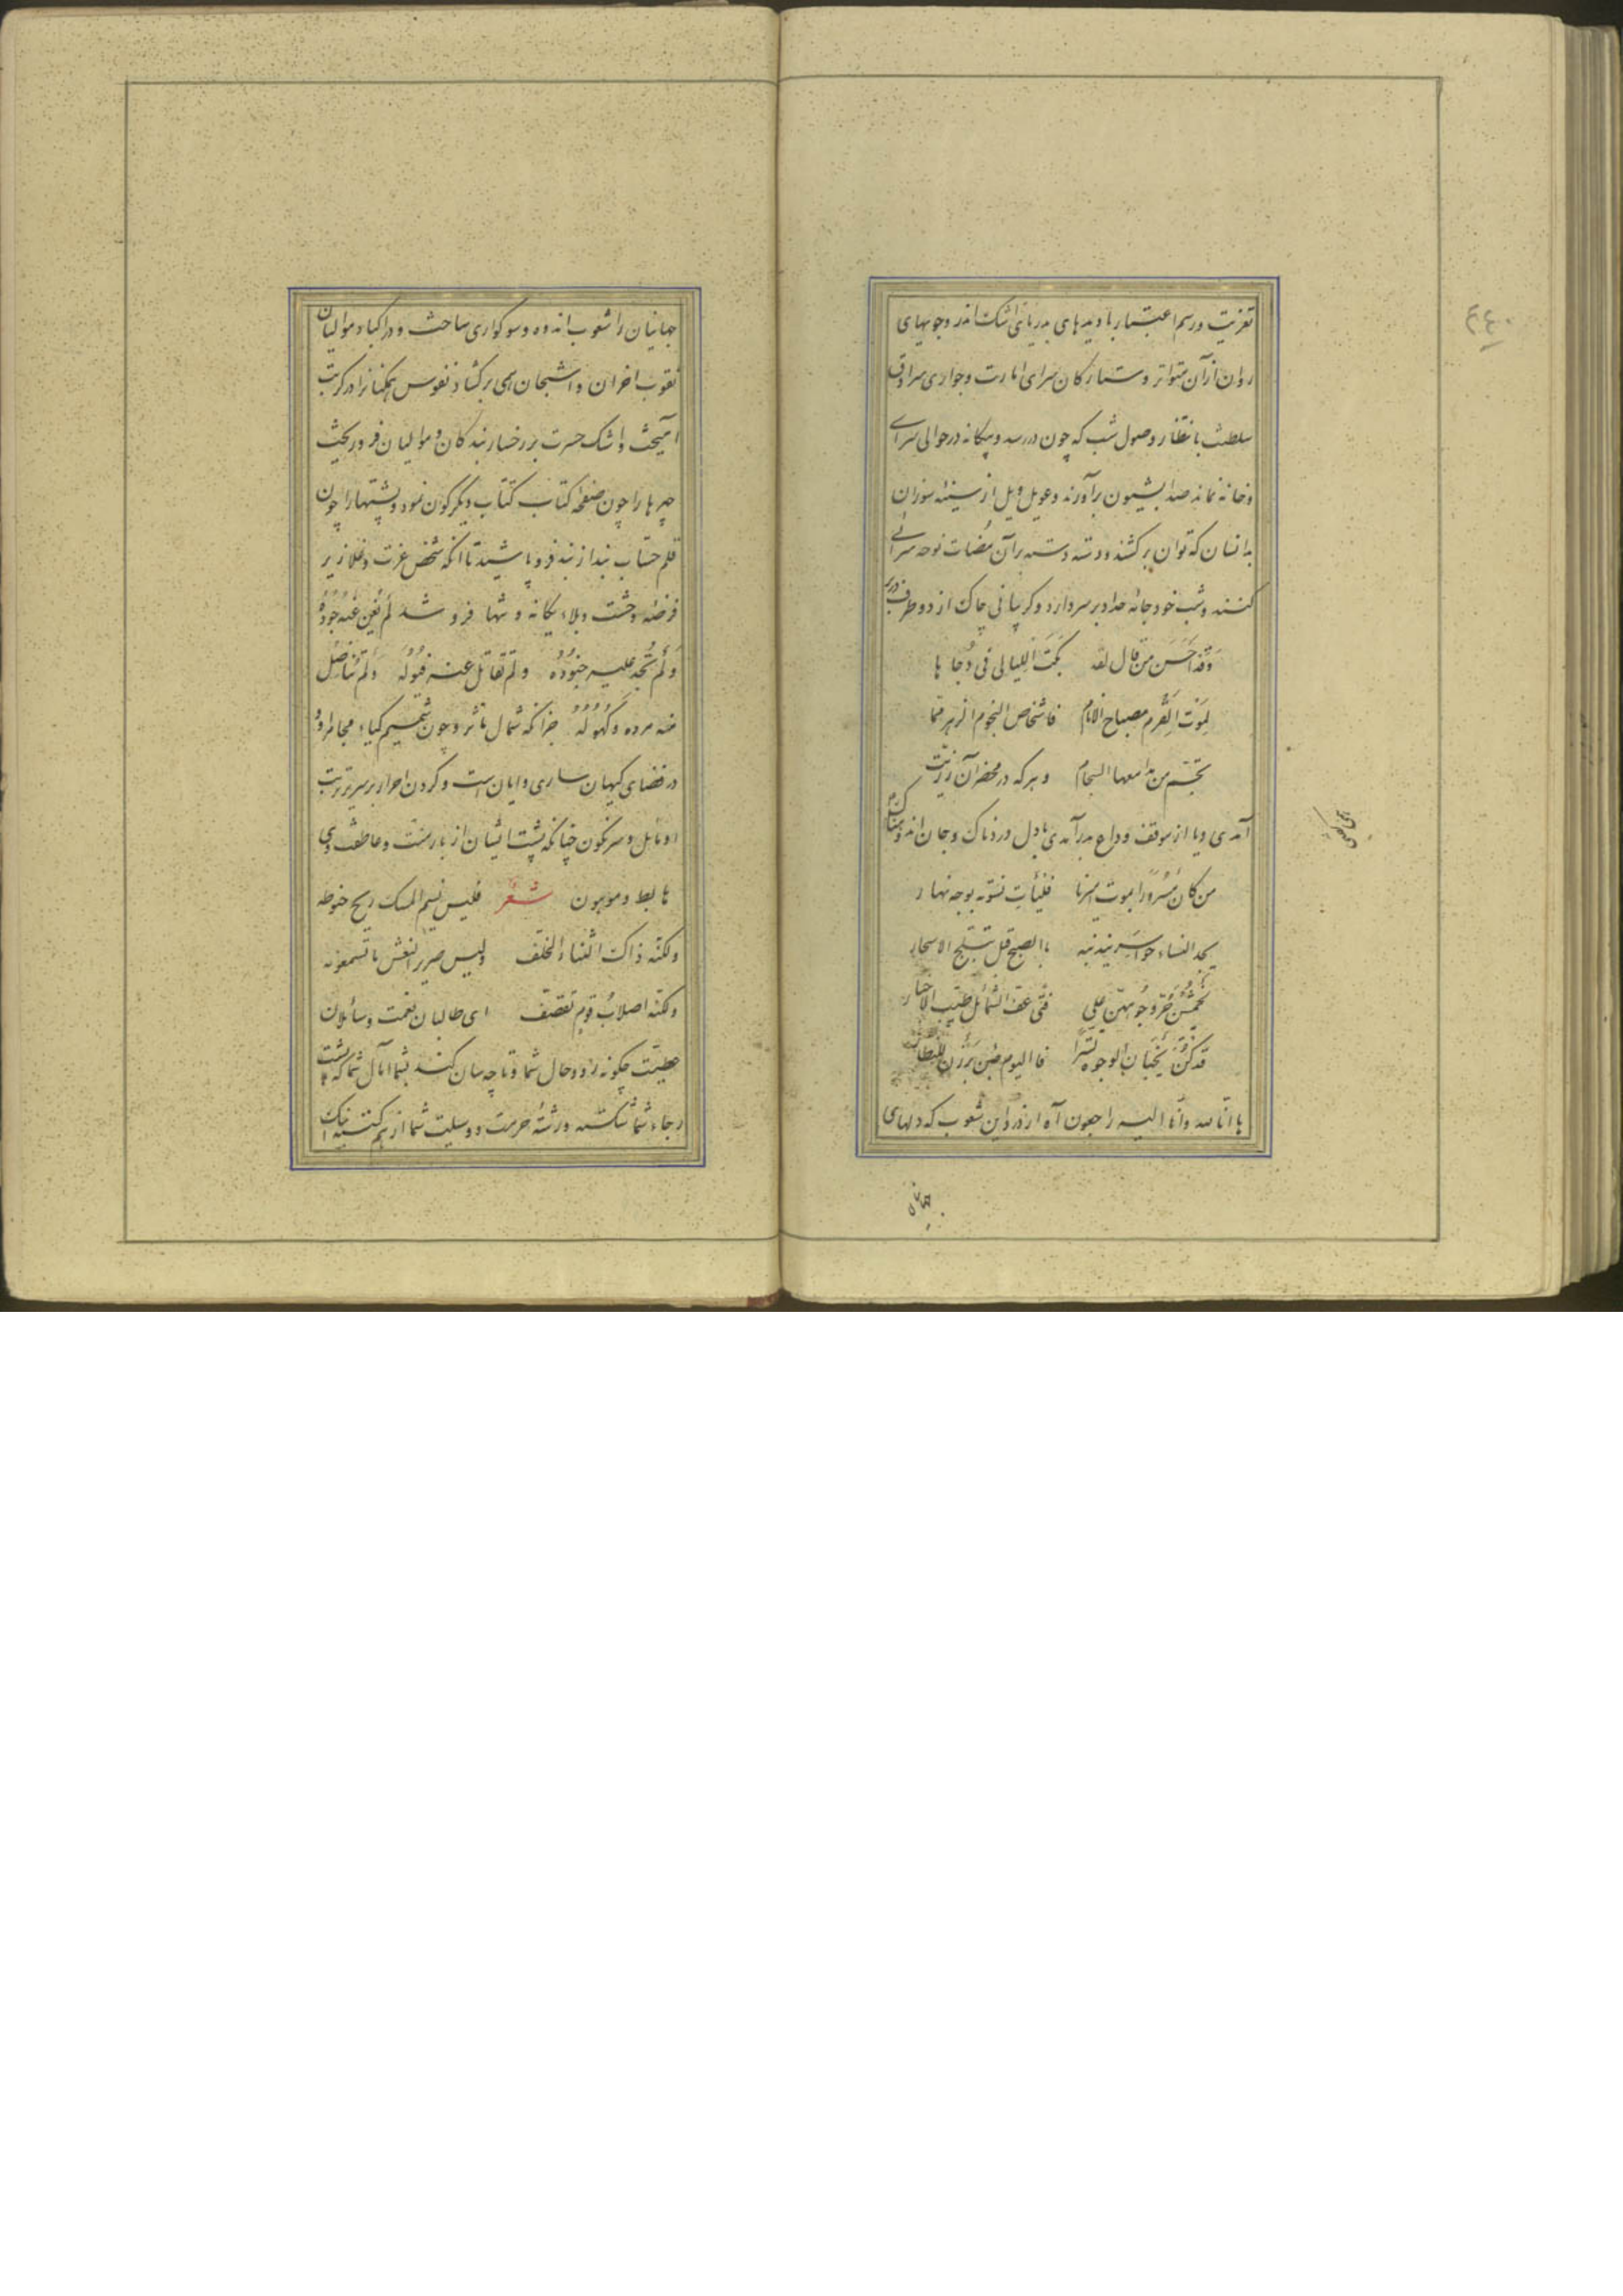 تعزیت و رسم اعتبار با دیده‌های دریای اشک اندر و جویهای
روان از آن متواتر و ستارکان سرای امارت و جواری سرادق
سلطنت بانتظار وصول شب که چون در رسد و بیکانه در حوالی سرای
و خانه نماند صدا بشیون برآورند و عویل و یل از سینه سوزان
بدانسان که توان برکشند و دسته دسته بر آن نوحه سرائی
کنند و شب خود جامه حداد بر سر دارد و کریبانی چاک از دو طرف
وقد احسن من قال لقد بکت اللیالی فی دجاها
لموت القرم مصباح الانام فاشخاص النجوم الزهر
تجسم من مدامعها السجام و هر که در محضر آن
آمدی و یا از موقف وداع بدر آمدی با دل دردناک و جان اندوهناک
من کان مسرورا بموت امیرنا فلیأت نسوته بوجه نهار
یجد النساء حواسر یندبنه بالصبح قبل تبلج الاسحار
یخمشن حر وجوههن علی فتی عف الشمائل طیب الاخبار
قد کن یخبأن الوجوه تسترا فالیوم حین برزن للنظار
یا انا لله وانا الیه راجعون آه از در این شعوب که دلهای
جهانیان
جهانیان را شعوب اندوه و سوکواری ساخت و در اکباد موالیان
ثقوب احزان و اشجان همی برکشاد نفوس همکنانرا در کربت
آمیخت و اشک حسرت بر رخسار بندکان و موالیان فرو ریخت
چهرها را چون صفحه کتاب کتاب دیکرکون نمود و پشتها را چون
قلم حساب بند از بند فرو پاشید تا آنکه شخص عزت و علا زیر
وحشت و بلاء بیکانه و تنها فرو شد لم یغن عنه جوده
ولم تجد علیه جنوده ولم تقاتل عنه ولم تناضل
عنه مرده وکهوله جز آنکه شمال مآثر و چون شمیم کباء مجامر او
در فضای کیهان ساری و ایان است و کردن احرار بر سر تربت
او مایل و سرنکون چنانکه پشت ایشان از بار منت و عاطفت وی
شعر فلیس نسیم المسک ریح حنوطه
ولکنه ذاک الثناء المخلف ولیس صریر النعش ما تسمعونه
ولکنه اصلاب قوم تقصف ای طالبان نعمت و سائلان
عطیت چکونه رود حال شما و تا چه سان کند بشما آمال شما که پشت
رجاء شما شکسته و رشته حرمت و وسیلت شما از هم کسیخت